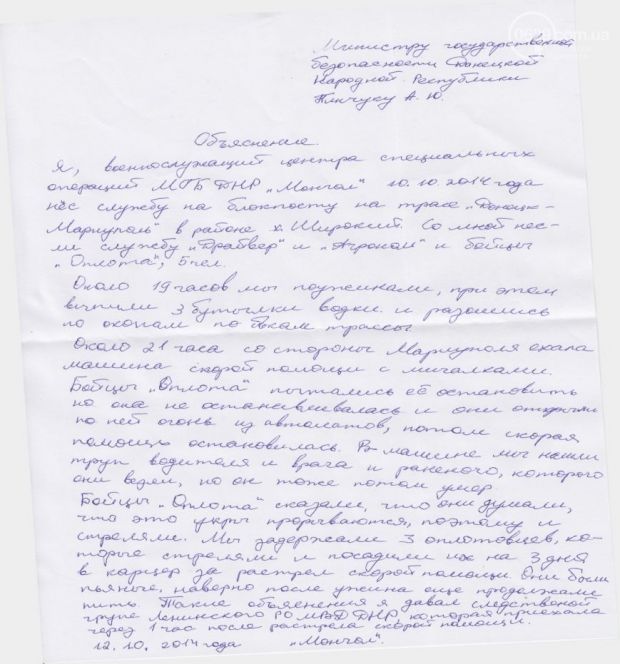 0629.com.ua
Министру государственной
безопасности Донецкой
Народной Республики
Пинчусу А. Ю.
Объяснение.
Я, военнослужащий центра специальных
операций МГБ ДНР „Монгол" 10.10.2014 года
нёс службу на блокпосту на трасе „Донецк-
Мариуполь" в районе х. Широкий. Со мной нес-
ли службу „Драйвер" и „Агроном" и бойцы
„Оплота", 5 чел.
Около 19 часов мы поужинали, при этом
выпили 3 бутылки водки. и разошлись
по окопам по бокам трассы
Около 21 часа со стороны Мариуполя ехала
машина скорой помощи с мигалками.
Бойцы „Оплота" пытались её остановить
но она не останавливалась и они открыли
по ней огонь из автоматов, потом скорая
помощь остановилась. В машине мы нашли
труп водителя и врача и раненого, которого
они везли, но он тоже потом умер.
Бойцы „Оплота" сказали, что они думали,
что это укры прорываются, поэтому и
стреляли. Мы задержали 3 оплотовцев, ко-
торые стреляли и посадили их на 3 дня
в карцер за растрел скорой помощи Они были
пьяные, наверно после ужина еще продолжали
пить. Такие объяснения я давал следственой
групе Ленинского РО МВД ДНР которая приехала
через 1 час после растрела скорой помощи.
12.10.2014 года „Монгол".